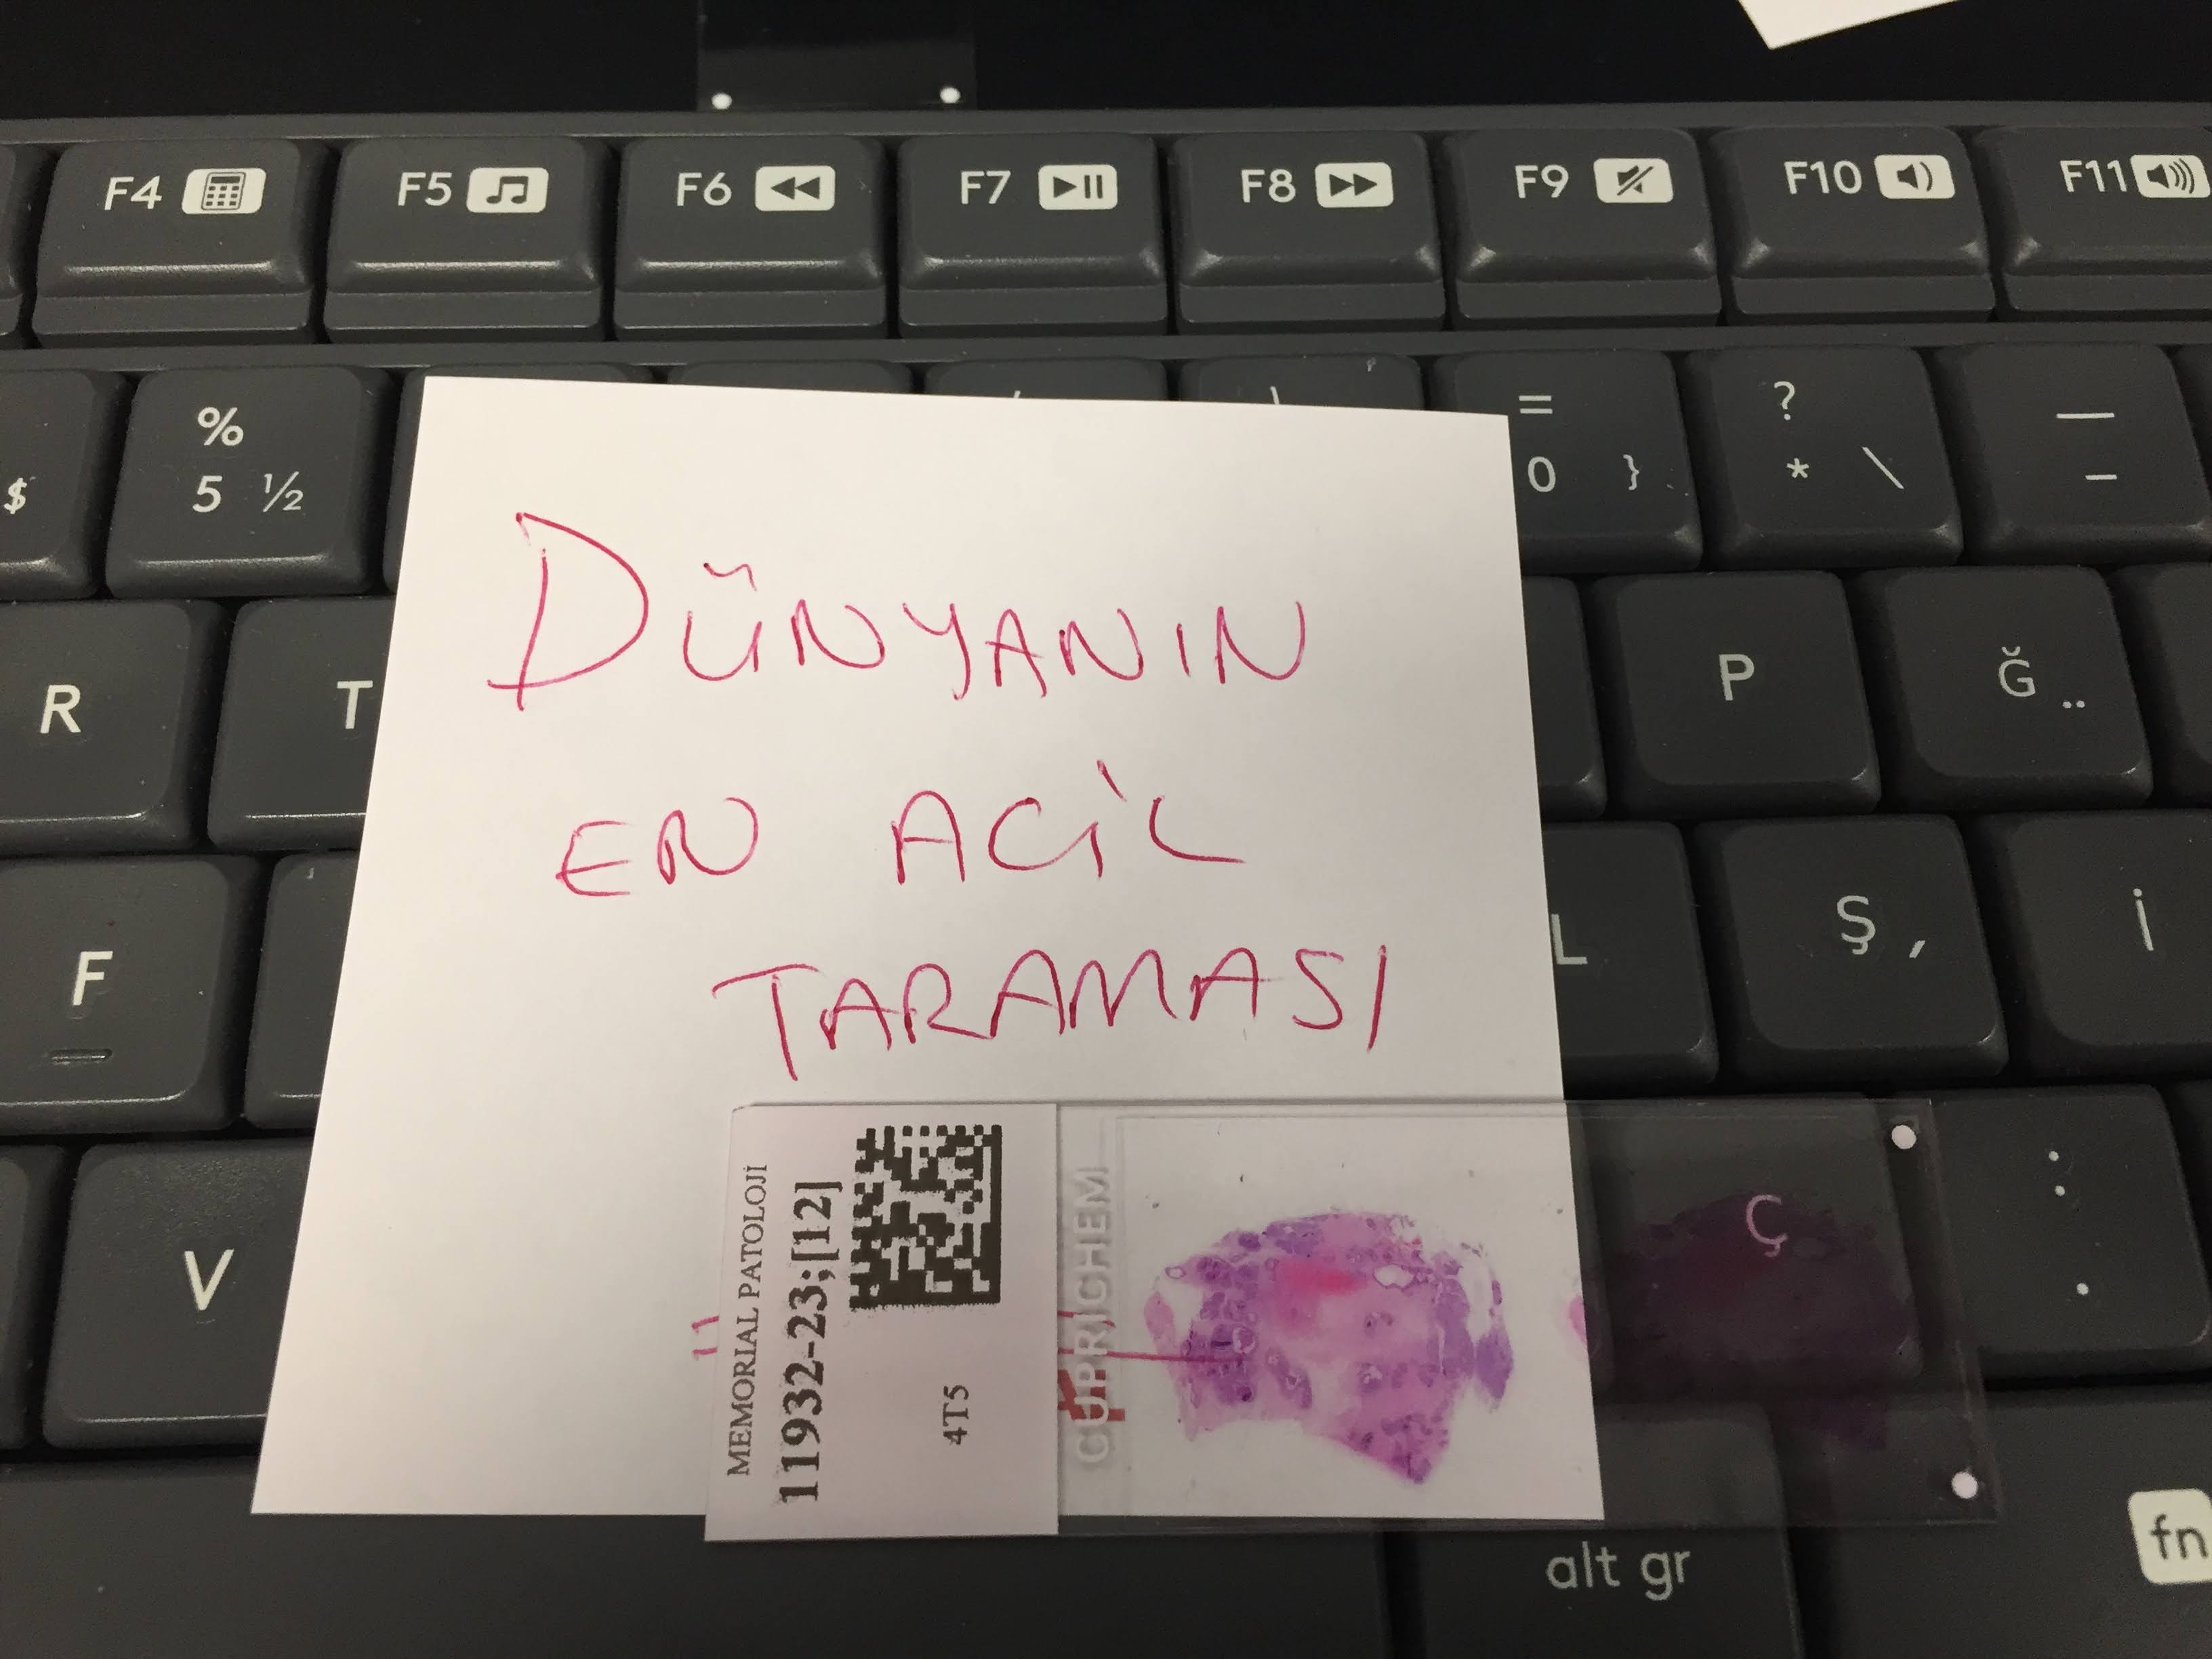 DÜNYANIN
EN ACİL
TARAMASI
11
MEMORIAL PATOLOJİ
11932-23;[12]
4T5
CUPRICHEM
F4
F5
F6
F7
F8
F9
F10
F11
$
%
5 ½
=
0 }
?
* \
_
-
R
T
P
Ğ ¨
F
L
Ş ,
İ
V
Ç
:
.
alt gr
fn